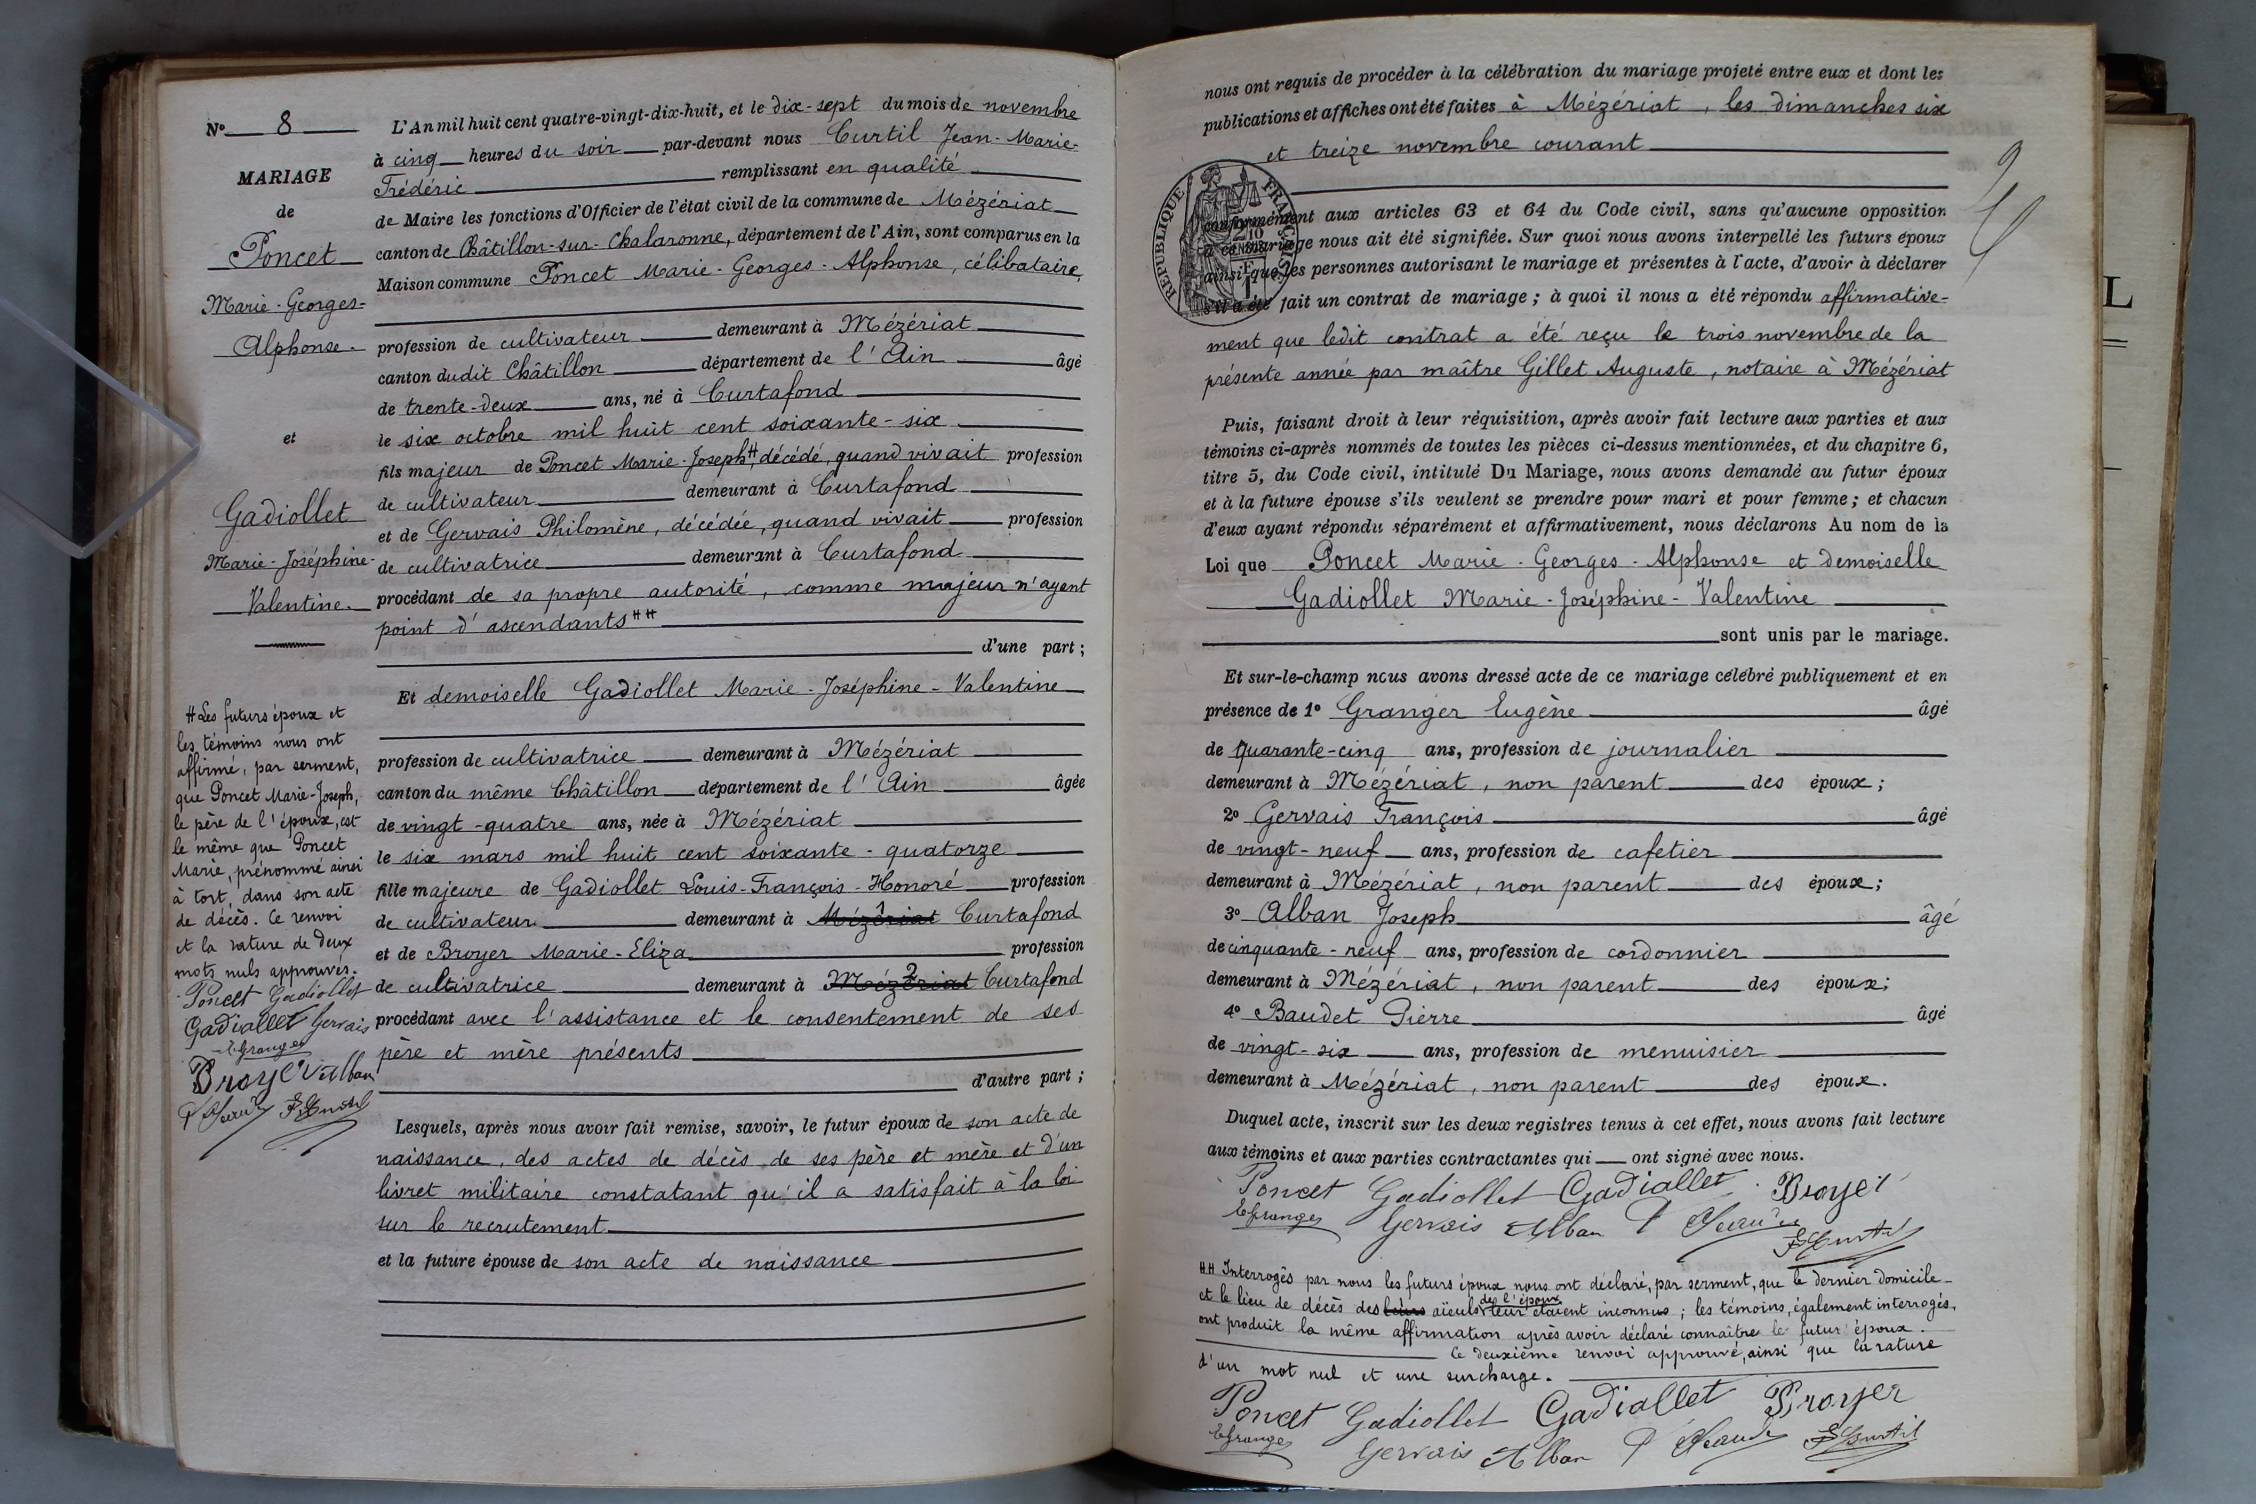 N° 8
MARIAGE
de
Poncet
Marie-Georges-
Alphonse.
et
Gadiollet
Marie-Joséphine-
Valentine.
# Les futurs époux et
les témoins nous ont
affirmé, par serment,
que Poncet Marie-Joseph,
le père de l'époux, est
le même que Poncet
Marie, prénommé ainsi
à tort, dans son acte
de décès. Ce renvoi
et la rature de deux
mots nuls approuvés.
Poncet Gadiollet
Gadiollet Gervais
E Granger
Broyer Alban
L'An mil huit cent quatre-vingt-dix-huit, et le dix-sept du mois de novembre
à cinq heures du soir par-devant nous Curtil Jean-Marie-
Frédéric remplissant en qualité
de Maire les fonctions d'Officier de l'état civil de la commune de Mézériat
canton de Châtillon-sur-Chalaronne, département de l'Ain, sont comparus en la
Maison commune Poncet Marie-Georges-Alphonse, célibataire,
profession de cultivateur demeurant à Mézériat
canton dudit Châtillon département de l'Ain âgé
de trente-deux ans, né à Curtafond
le six octobre mil huit cent soixante-six
fils majeur de Poncet Marie-Joseph #, décédé, quand vivait profession
de cultivateur demeurant à Curtafond
et de Gervais Philomène, décédée, quand vivait profession
de cultivatrice demeurant à Curtafond
procédant de sa propre autorité, comme majeur n'ayant
point d'ascendants ##
d'une part;
Et demoiselle Gadiollet Marie-Joséphine-Valentine
profession de cultivatrice demeurant à Mézériat
canton du même Châtillon département de l'Ain âgée
de vingt-quatre ans, née à Mézériat
le six mars mil huit cent soixante-quatorze
fille majeure de Gadiollet Louis-François-Honoré profession
de cultivateur demeurant à Mézériat 1 Curtafond
et de Broyer Marie-Eliza profession
de cultivatrice demeurant à Mézériat 2 Curtafond
procédant avec l'assistance et le consentement de ses
père et mère présents
d'autre part;
Lesquels, après nous avoir fait remise, savoir, le futur époux de son acte de
naissance, des actes de décès de ses père et mère et d'un
livret militaire constatant qu'il a satisfait à la loi
sur le recrutement
et la future épouse de son acte de naissance
nous ont requis de procéder à la célébration du mariage projeté entre eux et dont les
publications et affiches ont été faites à Mézériat, les dimanches six
et treize novembre courant
RÉPUBLIQUE FRANÇAISE
conformément aux articles 63 et 64 du Code civil, sans qu'aucune opposition
à ce mariage nous ait été signifiée. Sur quoi nous avons interpellé les futurs époux
ainsi que les personnes autorisant le mariage et présentes à l'acte, d'avoir à déclarer
s'il a été fait un contrat de mariage; à quoi il nous a été répondu affirmative-
ment que ledit contrat a été reçu le trois novembre de la
présente année par maître Gillet Auguste, notaire à Mézériat
Puis, faisant droit à leur réquisition, après avoir fait lecture aux parties et aux
témoins ci-après nommés de toutes les pièces ci-dessus mentionnées, et du chapitre 6,
titre 5, du Code civil, intitulé Du Mariage, nous avons demandé au futur époux
et à la future épouse s'ils veulent se prendre pour mari et pour femme; et chacun
d'eux ayant répondu séparément et affirmativement, nous déclarons Au nom de la
Loi que Poncet Marie-Georges-Alphonse et demoiselle
Gadiollet Marie-Joséphine-Valentine
sont unis par le mariage.
Et sur-le-champ nous avons dressé acte de ce mariage célébré publiquement et en
présence de 1° Granger Eugène âgé
de quarante-cinq ans, profession de journalier
demeurant à Mézériat, non parent des époux;
2° Gervais François âgé
de vingt-neuf ans, profession de cafetier
demeurant à Mézériat, non parent des époux;
3° Alban Joseph âgé
de cinquante-neuf ans, profession de cordonnier
demeurant à Mézériat, non parent des époux;
4° Baudet Pierre âgé
de vingt-six ans, profession de menuisier
demeurant à Mézériat, non parent des époux.
Duquel acte, inscrit sur les deux registres tenus à cet effet, nous avons fait lecture
aux témoins et aux parties contractantes qui ont signé avec nous.
Poncet Gadiollet Gadiollet Broyer
E Granger Gervais Alban
## Interrogés par nous les futurs époux nous ont déclaré, par serment, que le dernier domicile
et le lieu de décès des leurs aïeuls de l'époux leur étaient inconnus; les témoins, également interrogés,
ont produit la même affirmation après avoir déclaré connaître le futur époux.
Ce deuxième renvoi approuvé, ainsi que la rature
d'un mot nul et une surcharge.
Poncet Gadiollet Gadiollet Broyer
E Granger Gervais Alban
L